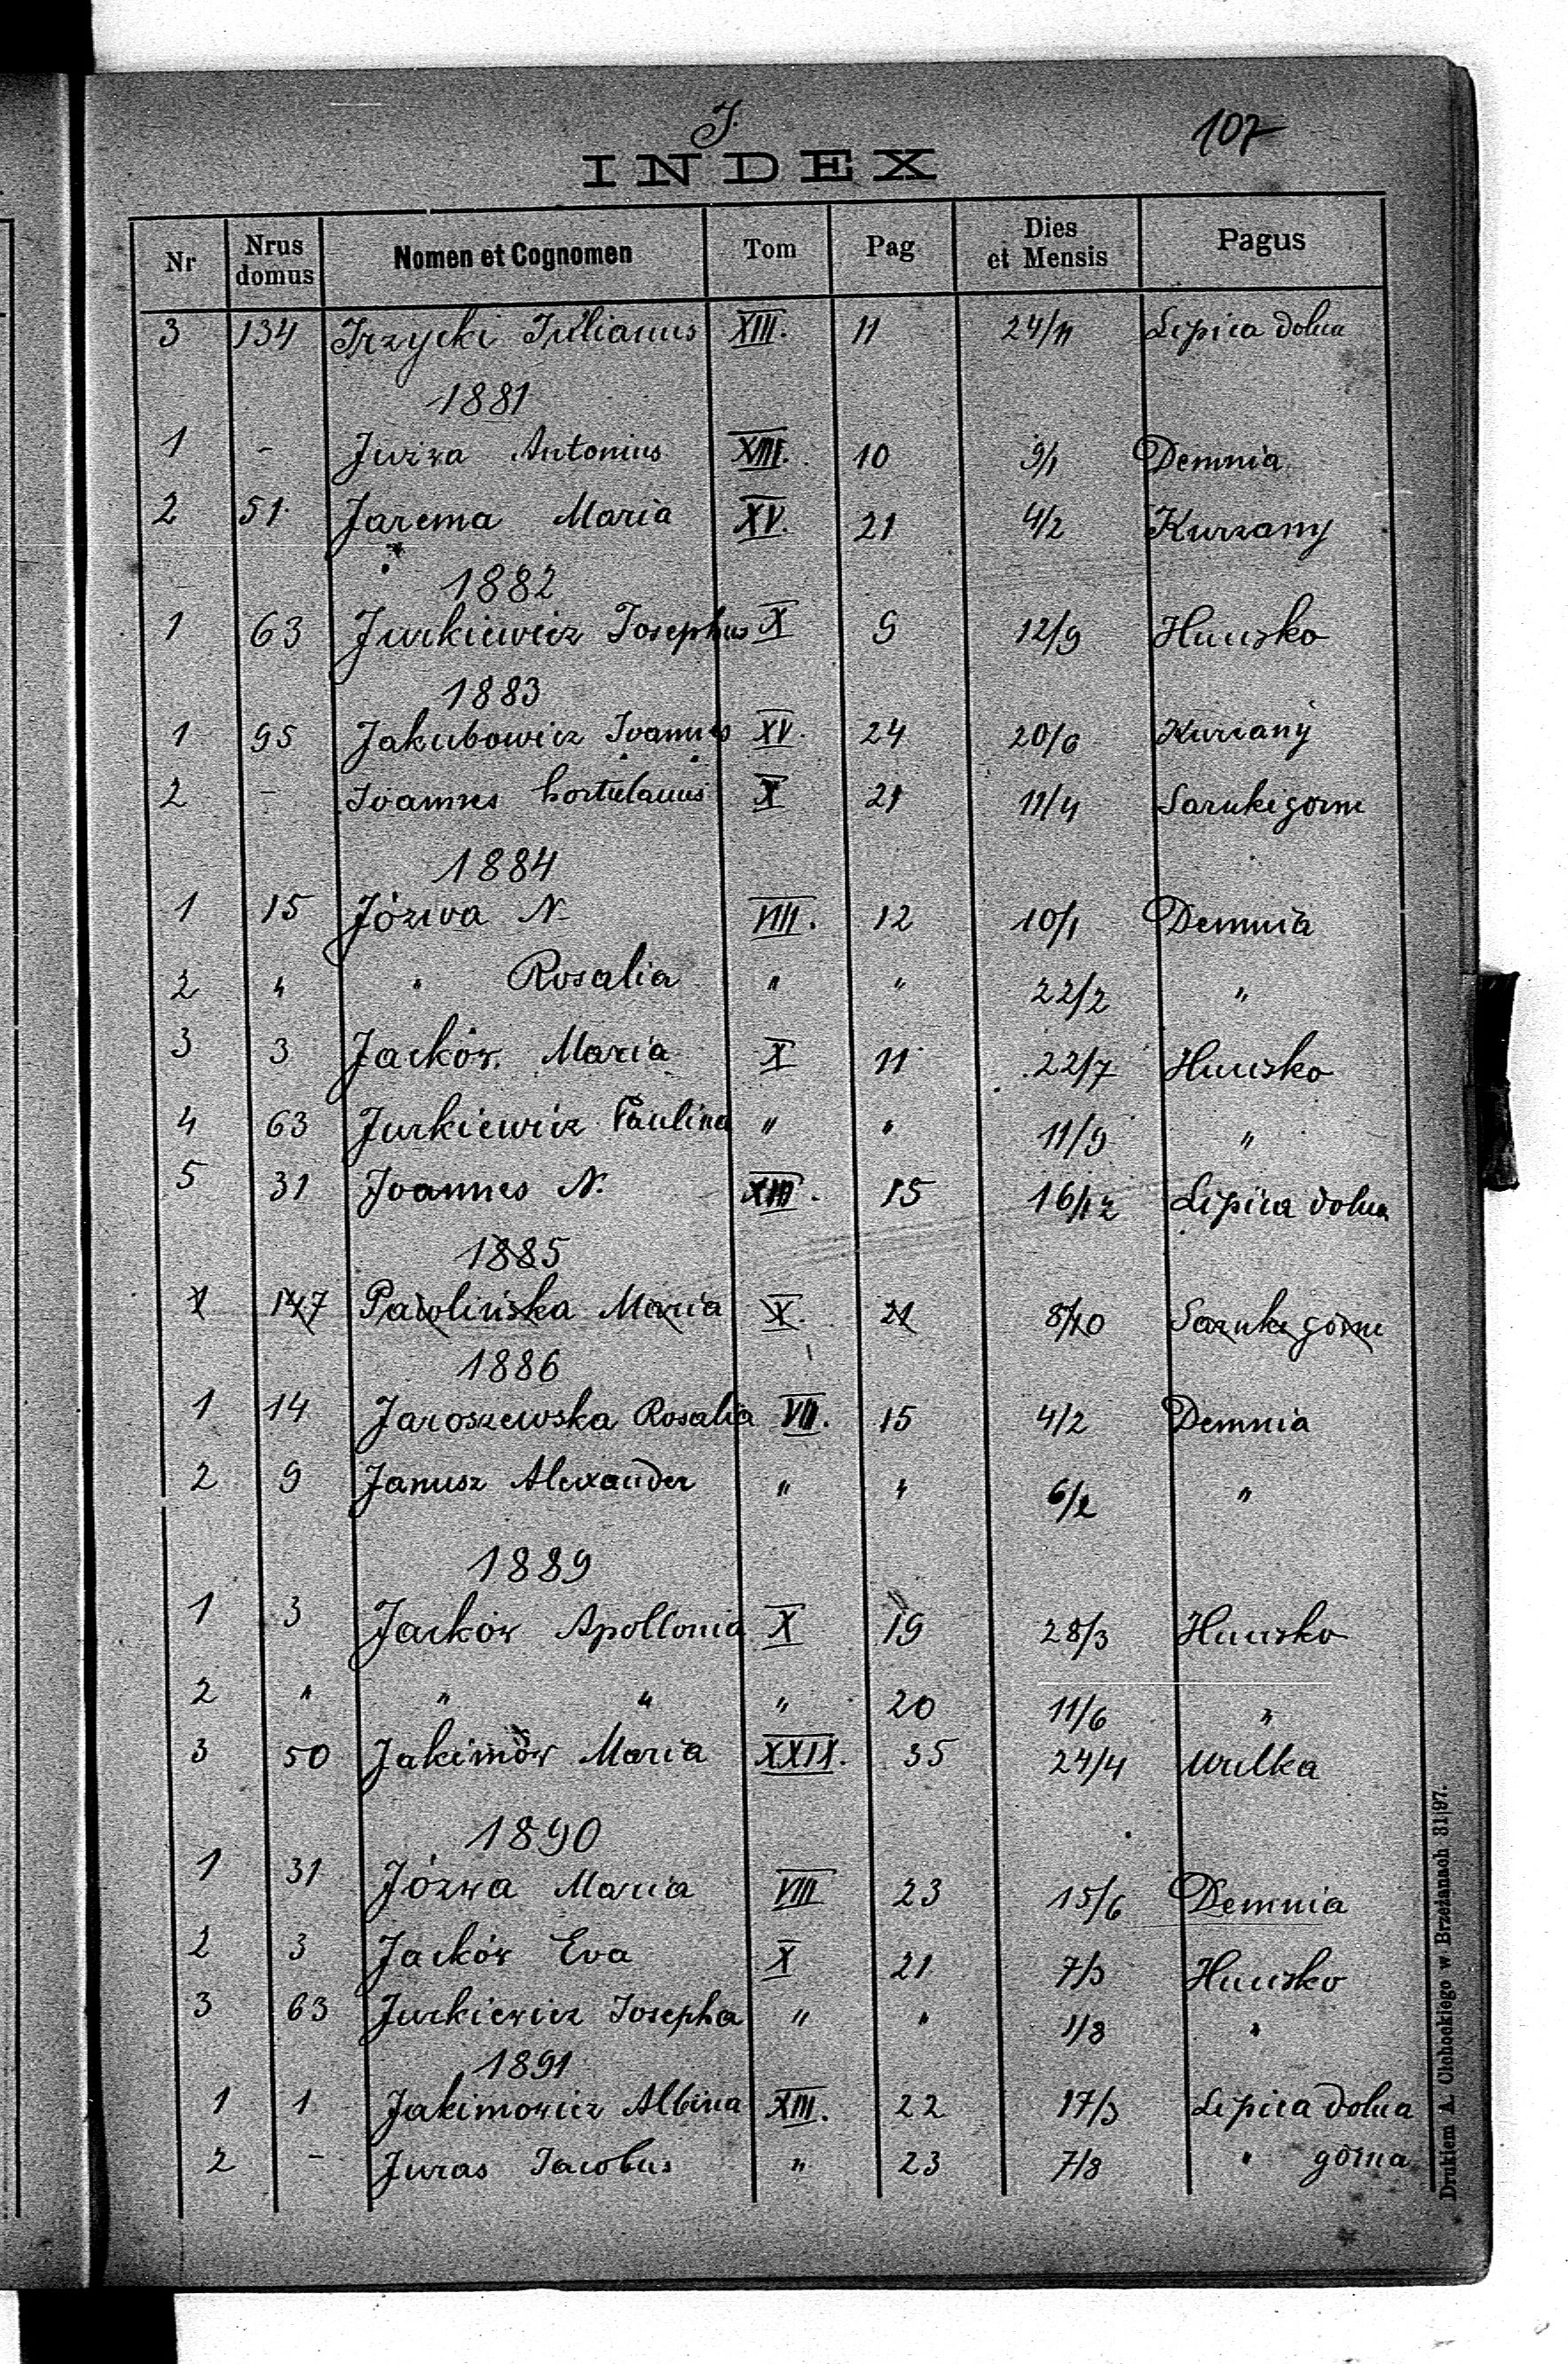 J.
107
INDEX
Nr Nrus domus Nomen et Cognomen Tom Pag Dies et Mensis Pagus
3 134 Irzycki Julianus XIII. 11 24/11 Lipica dolna
1881
1 - Juzwa Antonius VIII. 10 9/1 Demnia
2 51 Jarema Maria XV. 21 4/2 Kurzany
1882
1 63 Jurkiewicz Josephus X 9 12/9 Hucisko
1883
1 95 Jakubowicz Joannes XV. 24 20/6 Kurzany
2 - Joannes hortulanus X 21 11/4 Saranki gorne
1884
1 15 Józwa N. VIII. 12 10/1 Demnia
2 " " Rosalia " " 22/2 "
3 3 Jacków Maria X 11 22/7 Hucisko
4 63 Jurkiewicz Paulina " " 11/9 "
5 31 Joannes N. XIII. 15 16/12 Lipica dolna
1885
1 147 Pawolińska Maria X. 21 8/10 Saranki górne
1886
1 14 Jaroszewska Rosalia VIII. 15 4/2 Demnia
2 9 Janusz Alexander " " 6/2 "
1889
1 3 Jacków Apollonia X 19 28/3 Hucisko
2 " " " " 20 11/6 "
3 50 Jakimów Maria XXIX. 35 24/4 Wulka
1890
1 31 Józwa Maria VIII 23 15/6 Demnia
2 3 Jacków Eva X 21 7/3 Hucisko
3 63 Jurkiewicz Josepha " " 1/8 "
1891
1 1 Jakimowicz Albina XIII. 22 17/3 Lipica dolna
2 - Juras Jacobus " 23 7/8 " górna
Drukiem A. Olchockiego w Brzeżanach 31/97.